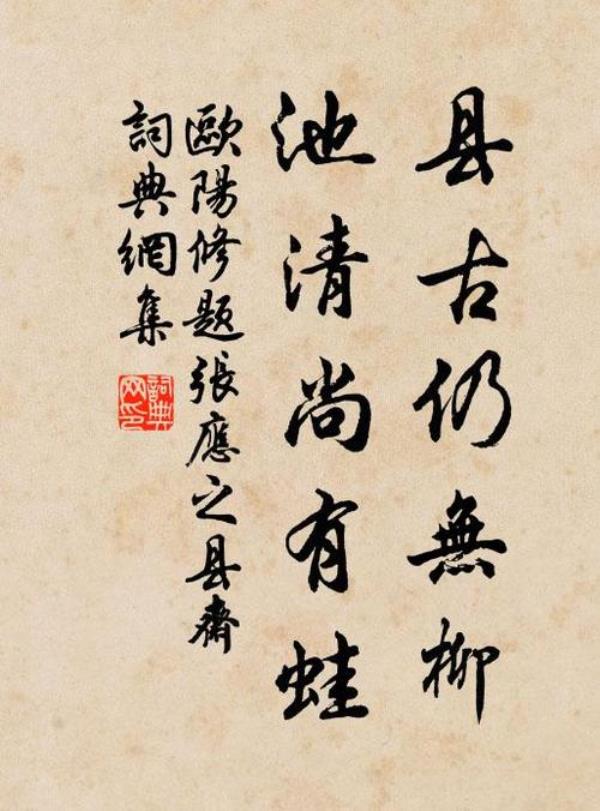 县古仍無柳
池清尚有蛙
歐陽修题張應之县齋
詞典網集
詞典網印